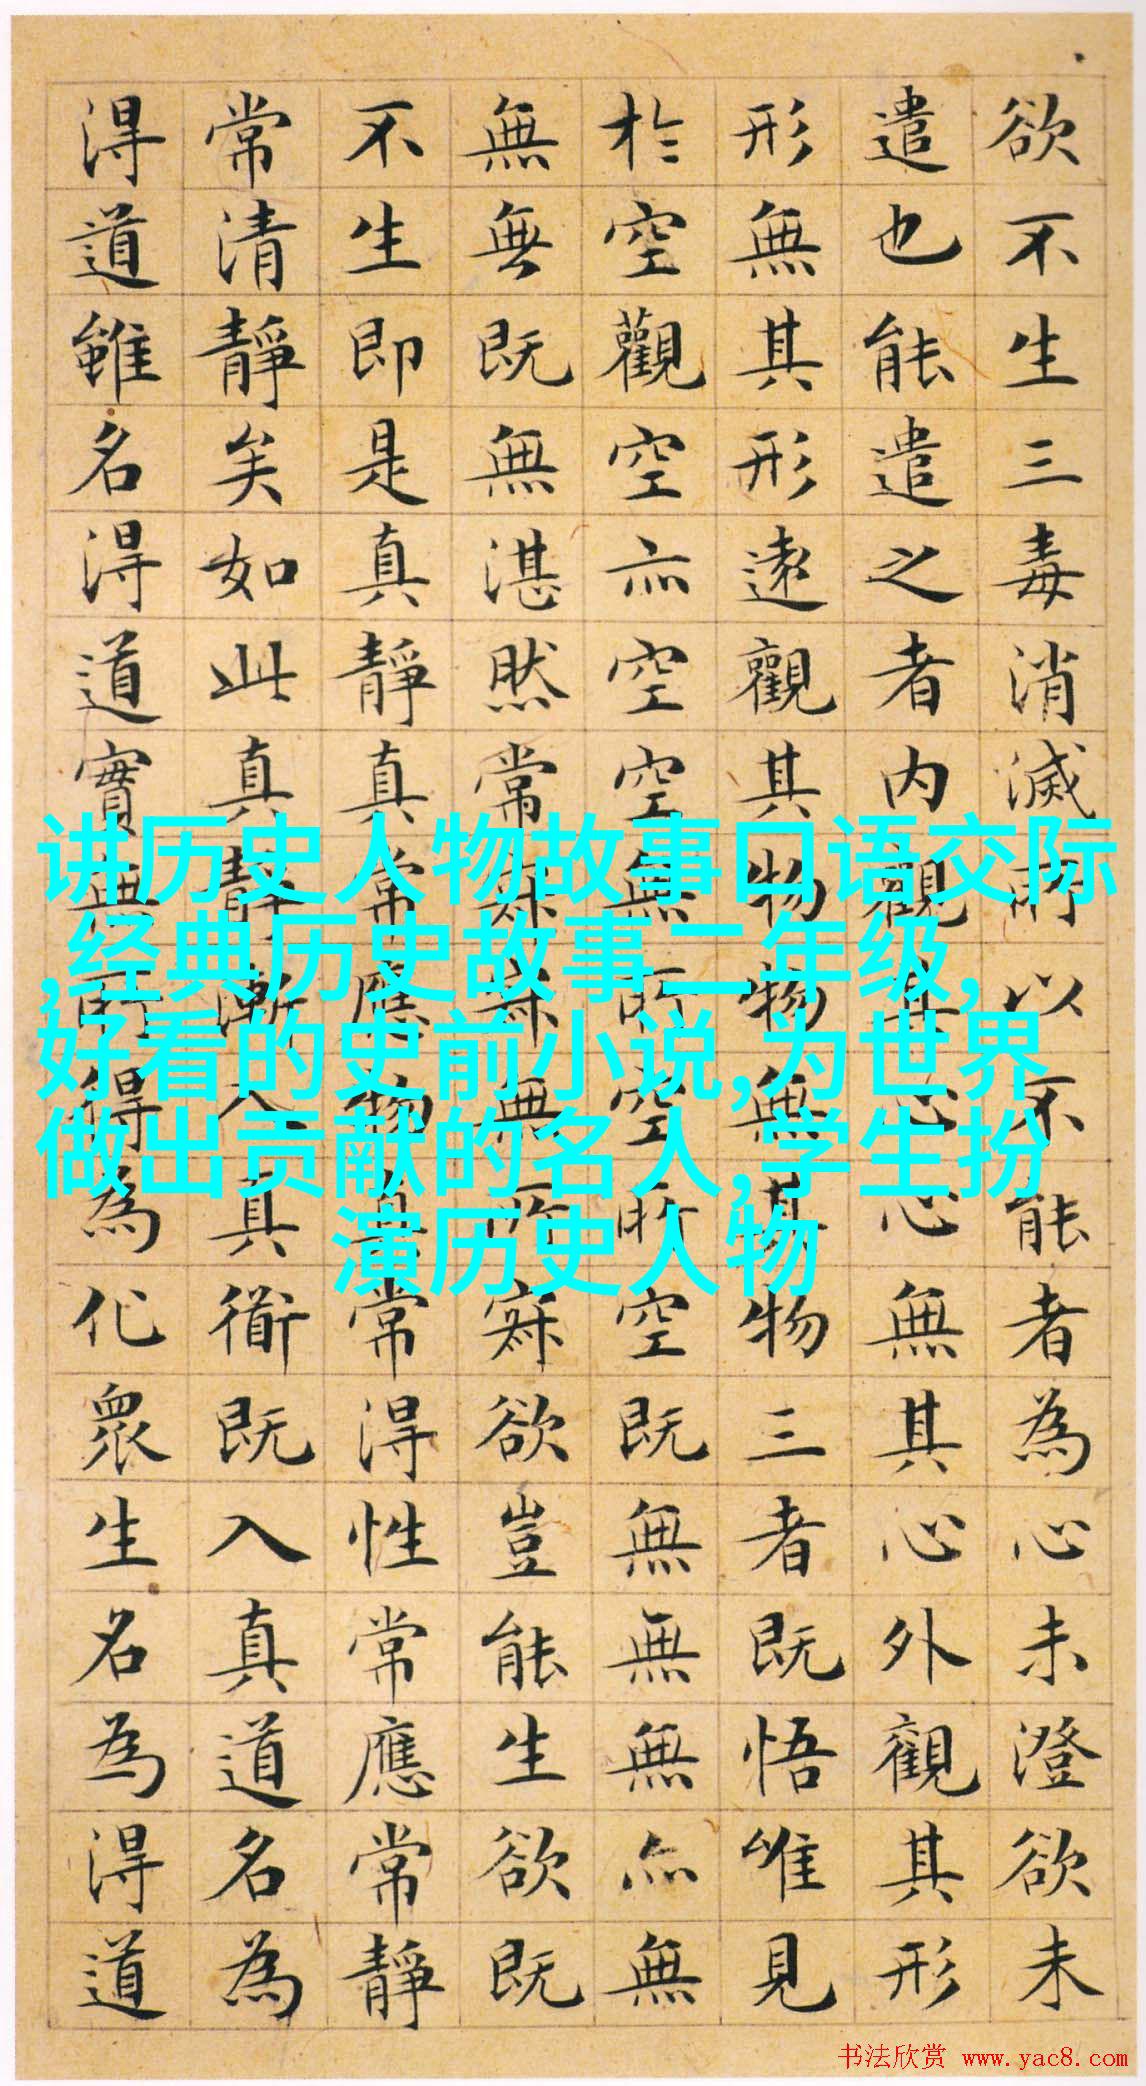 欲不生三毒消滅所以不能者為心未澄欲未
遣也能遣之者内觀其心心無其心外觀其形
形無其形遠觀其物物無其物三者既悟唯見
於空觀空亦空空無所空所空既無無無亦無
無無既無湛然常寂寂無所寂欲豈能生欲既
不生即是真靜真常應物真常得性常應常靜
常清靜矣如此真靜漸入真衜既入真道名為
得道雖名得道實無所得為化眾生名為得道
讲历史人物故事口语交际
,经典历史故事二年级,
好看的史前小说,为世界
做出贡献的名人,学生扮
演历史人物
书法欣赏 www.yac8.com